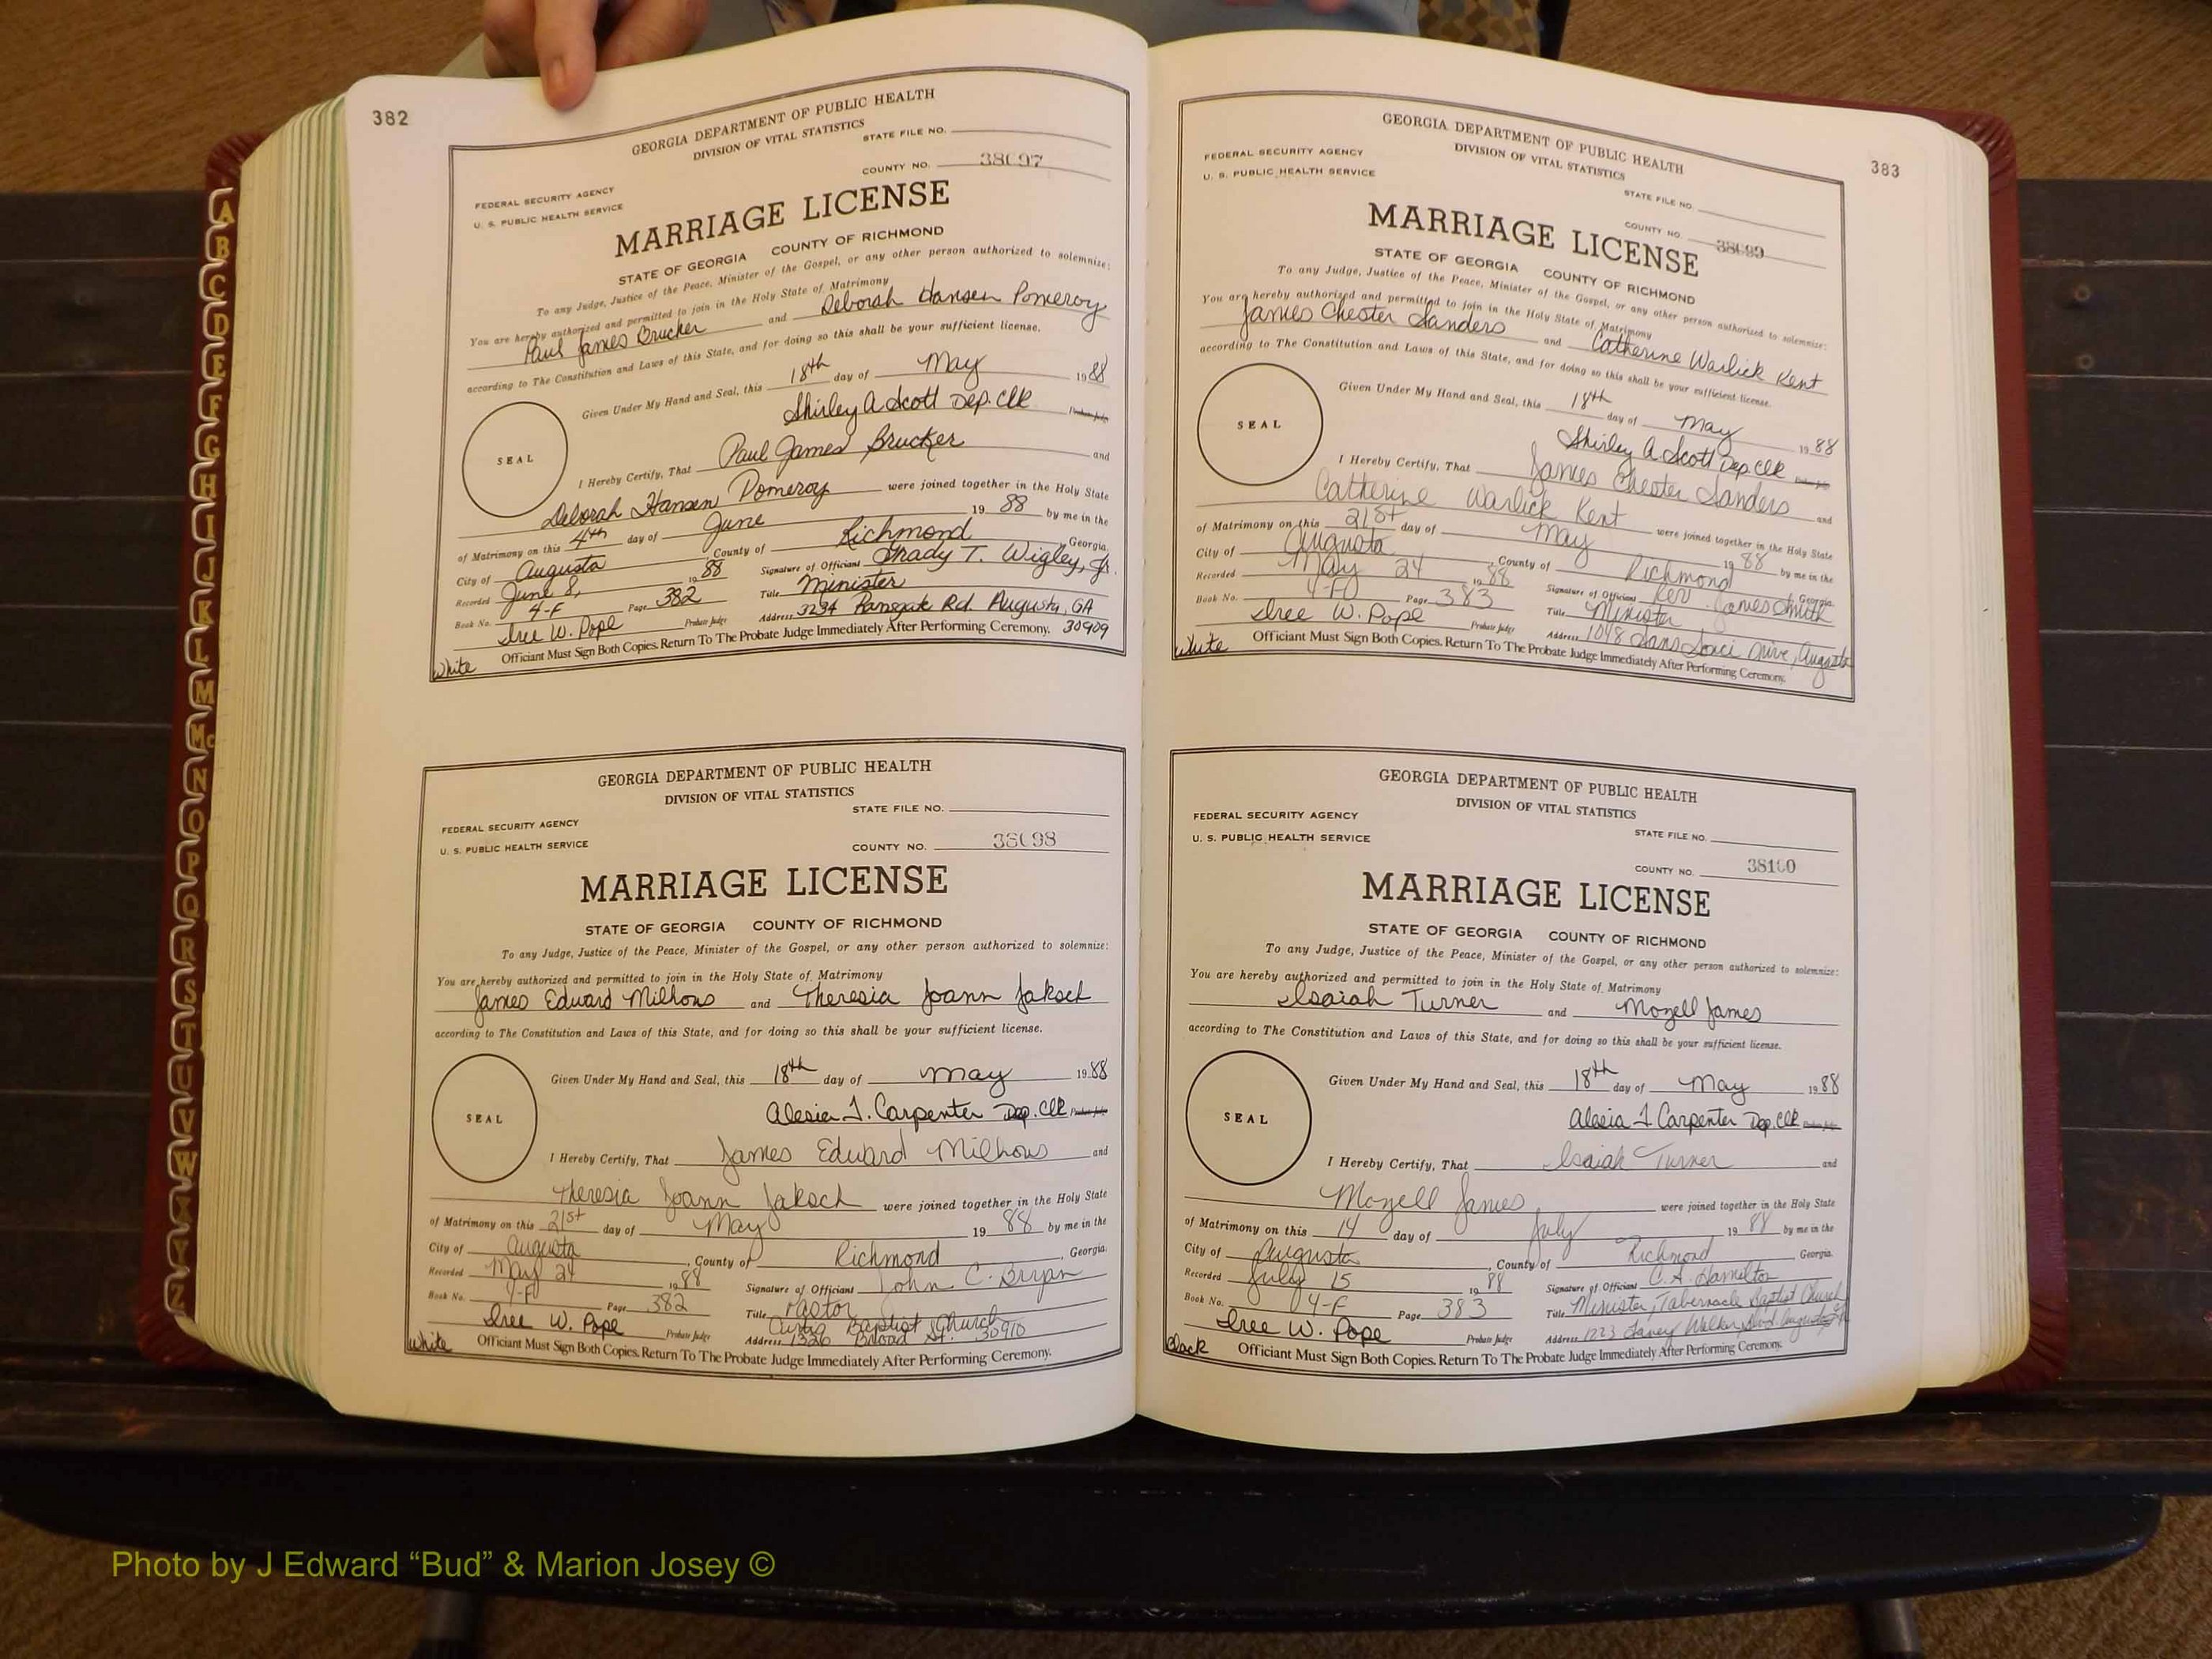 382
GEORGIA DEPARTMENT OF PUBLIC HEALTH
DIVISION OF VITAL STATISTICS
STATE FILE NO.
COUNTY NO. 38097
FEDERAL SECURITY AGENCY
U. S. PUBLIC HEALTH SERVICE
MARRIAGE LICENSE
STATE OF GEORGIA COUNTY OF RICHMOND
To any Judge, Justice of the Peace, Minister of the Gospel, or any other person authorized to solemnize:
You are hereby authorized and permitted to join in the Holy State of Matrimony
Paul James Brucker and Deborah Hansen Pomeroy
according to The Constitution and Laws of this State, and for doing so this shall be your sufficient license.
Given Under My Hand and Seal, this 18th day of May 1988
Shirley A Scott Dep. Clk Probate Judge
SEAL
I Hereby Certify, That Paul James Brucker and
Deborah Hansen Pomeroy were joined together in the Holy State
of Matrimony on this 4th day of June 19 88 by me in the
City of Augusta County of Richmond Georgia.
Recorded June 8, 19 88 Signature of Officiant Grady T. Wigley, Jr.
Book No. 4-F Page 382 Title Minister
Isee W. Pope Probate Judge Address 3234 Ramsgate Rd. Augusta, GA
30909
Officiant Must Sign Both Copies. Return To The Probate Judge Immediately After Performing Ceremony.
White
GEORGIA DEPARTMENT OF PUBLIC HEALTH
DIVISION OF VITAL STATISTICS
STATE FILE NO.
FEDERAL SECURITY AGENCY
U. S. PUBLIC HEALTH SERVICE
COUNTY NO. 38098
MARRIAGE LICENSE
STATE OF GEORGIA COUNTY OF RICHMOND
To any Judge, Justice of the Peace, Minister of the Gospel, or any other person authorized to solemnize:
You are hereby authorized and permitted to join in the Holy State of Matrimony
James Edward Milhous and Theresia Joann Jaksch
according to The Constitution and Laws of this State, and for doing so this shall be your sufficient license.
Given Under My Hand and Seal, this 18th day of May 1988
Alesia J. Carpenter Dep. Clk Probate Judge
SEAL
I Hereby Certify, That James Edward Milhous and
Theresia Joann Jaksch were joined together in the Holy State
of Matrimony on this 21st day of May 19 88 by me in the
City of Augusta, County of Richmond, Georgia.
Recorded May 24 19 88 Signature of Officiant John C. Bryan
Book No. 4-F Page 382 Title Pastor
Curtis Baptist Church
Isee W. Pope Probate Judge Address 1326 Broad St. 30910
Officiant Must Sign Both Copies. Return To The Probate Judge Immediately After Performing Ceremony.
White
383
GEORGIA DEPARTMENT OF PUBLIC HEALTH
DIVISION OF VITAL STATISTICS
FEDERAL SECURITY AGENCY
U. S. PUBLIC HEALTH SERVICE
STATE FILE NO.
COUNTY NO. 38099
MARRIAGE LICENSE
STATE OF GEORGIA COUNTY OF RICHMOND
To any Judge, Justice of the Peace, Minister of the Gospel, or any other person authorized to solemnize:
You are hereby authorized and permitted to join in the Holy State of Matrimony
James Chester Sanders and Catherine Warlick Kent
according to The Constitution and Laws of this State, and for doing so this shall be your sufficient license.
Given Under My Hand and Seal, this 18th day of May 1988
Shirley A Scott Dep Clk Probate Judge
SEAL
I Hereby Certify, That James Chester Sanders and
Catherine Warlick Kent were joined together in the Holy State
of Matrimony on this 21st day of May 19 88 by me in the
City of Augusta, County of Richmond, Georgia.
Recorded May 24 19 88 Signature of Officiant Rev. James Smith
Book No. 4-F Page 383 Title Minister
Isee W. Pope Probate Judge Address 1048 Sans Souci Drive, Augusta
Officiant Must Sign Both Copies. Return To The Probate Judge Immediately After Performing Ceremony.
White
GEORGIA DEPARTMENT OF PUBLIC HEALTH
DIVISION OF VITAL STATISTICS
FEDERAL SECURITY AGENCY
U. S. PUBLIC HEALTH SERVICE
STATE FILE NO.
COUNTY NO. 38100
MARRIAGE LICENSE
STATE OF GEORGIA COUNTY OF RICHMOND
To any Judge, Justice of the Peace, Minister of the Gospel, or any other person authorized to solemnize:
You are hereby authorized and permitted to join in the Holy State of Matrimony
Isaiah Turner and Mozell James
according to The Constitution and Laws of this State, and for doing so this shall be your sufficient license.
Given Under My Hand and Seal, this 18th day of May 1988
Alesia J Carpenter Dep. Clk Probate Judge
SEAL
I Hereby Certify, That Isaiah Turner and
Mozell James were joined together in the Holy State
of Matrimony on this 14 day of July 19 88 by me in the
City of Augusta, County of Richmond Georgia.
Recorded July 15 19 88 Signature of Officiant C. A. Hamilton
Book No. 4-F Page 383 Title Minister, Tabernacle Baptist Church
Isee W. Pope Probate Judge Address 1223 Laney Walker Blvd Augusta
Officiant Must Sign Both Copies. Return To The Probate Judge Immediately After Performing Ceremony.
Black
A
B
C
D
E
F
G
H
I
J
K
L
M
Mc
N
O
P
Q
R
S
T
U
V
W
X
Y
Z
Photo by J Edward “Bud” & Marion Josey ©